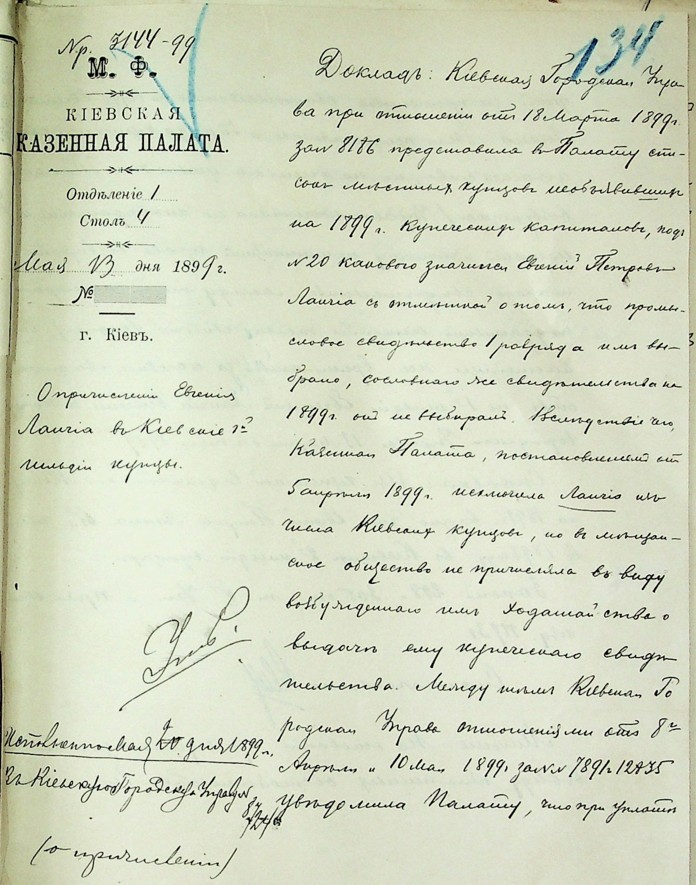 Пр. 3144-99
134
М. Ф.
КІЕВСКАЯ
КАЗЕННАЯ ПАЛАТА.
Отдѣленіе 1
Столъ 4
Мая 13 дня 1899 г.
№
г. Кіевъ.
О причисленіи Евгенія
Ланчіа въ Кіевскіе
гильдіи купцы.
Докладъ: Кіевская Городская Упра-
ва при отношеніи отъ 18 Марта 1899 г.
за № 8186 представила въ Палату спи-
сокъ мѣстныхъ купцовъ необъявившихъ
на 1899 г. купеческихъ капиталовъ, подъ
№ 20 какового значится Евгеній Петровъ
Ланчіа съ отмѣткой о томъ, что промы-
словое свидѣтельство 1 разряда имъ вы-
брано, сословнаго же свидѣтельства на
1899 г. онъ не выбиралъ. Вслѣдствіе чего,
Казенная Палата, постановленіемъ отъ
5 апрѣля 1899 г. исключила Ланчіо изъ
числа Кіевскихъ купцовъ, но въ мѣщан-
ское общество не причисляла въ виду
возбужденнаго имъ ходатайства о
выдачѣ ему купеческаго свидѣ-
тельства. Между тѣмъ Кіевская Го-
родская Управа отношеніями отъ 8
Апрѣля и 10 Мая 1899 за №№ 7891 и 12475
увѣдомила Палату, что при уплатѣ
дня 1899 г.
Въ Кіевскую Городскую Управу
(о причисленіи)